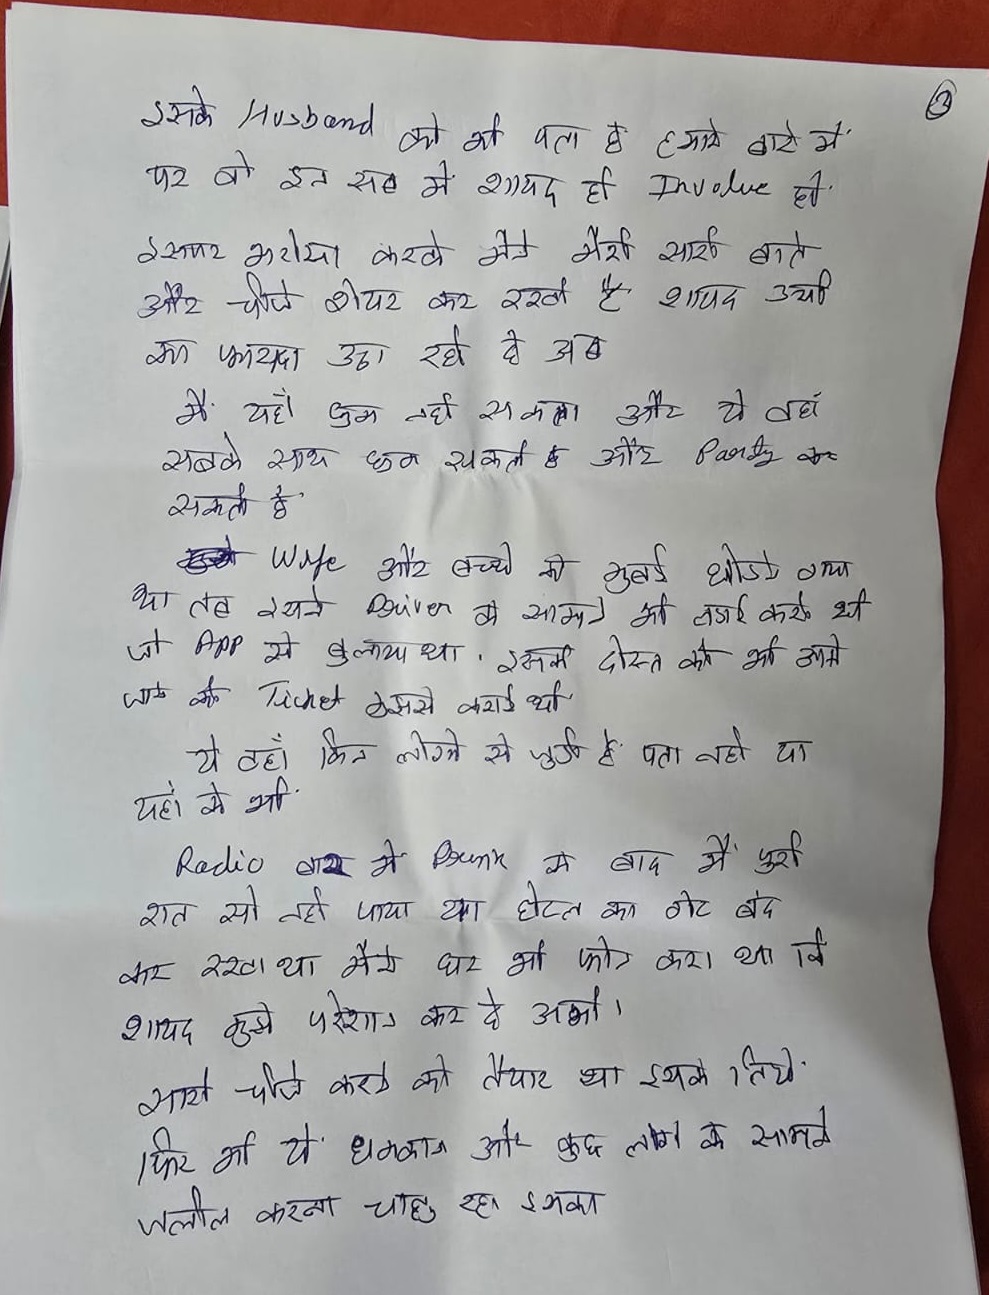 3
इसके Husband को भी पता है हमारे बारे में
पर वो इन सब में शायद ही Involve हो
इसपर भरोसा करके मैंने मेरी सारी बातें
और चीजें शेयर कर रखी है शायद उसी
का फायदा उठा रही है अब
मैं यहाँ घुम नहीं सकता और ये वहां
सबके साथ घुम सकती है और Party कर
सकती है
Wife और बच्चे को मुंबई छोडने गया
था तब इसने Driver के सामने भी लडाई करी थी
जो App से बुलाया था. इसकी दोस्त की भी आने
जाने की Ticket इससे कराई थी
ये वहाँ किन लोगो से जुडी है पता नही या
यहाँ में भी
Radio बार में Drunk के बाद में पुरी
रात सो नही पाया था होटल का गेट बंद
कर रखा था मैंने घर भी फोन करा था कि
शायद मुझे परेशान कर दे अभी।
सारी चीजें करने को तैयार था इसके लिये
फिर भी ये धमकाना और कुछ लोगों के सामने
जलील करना चाह रहा इसका